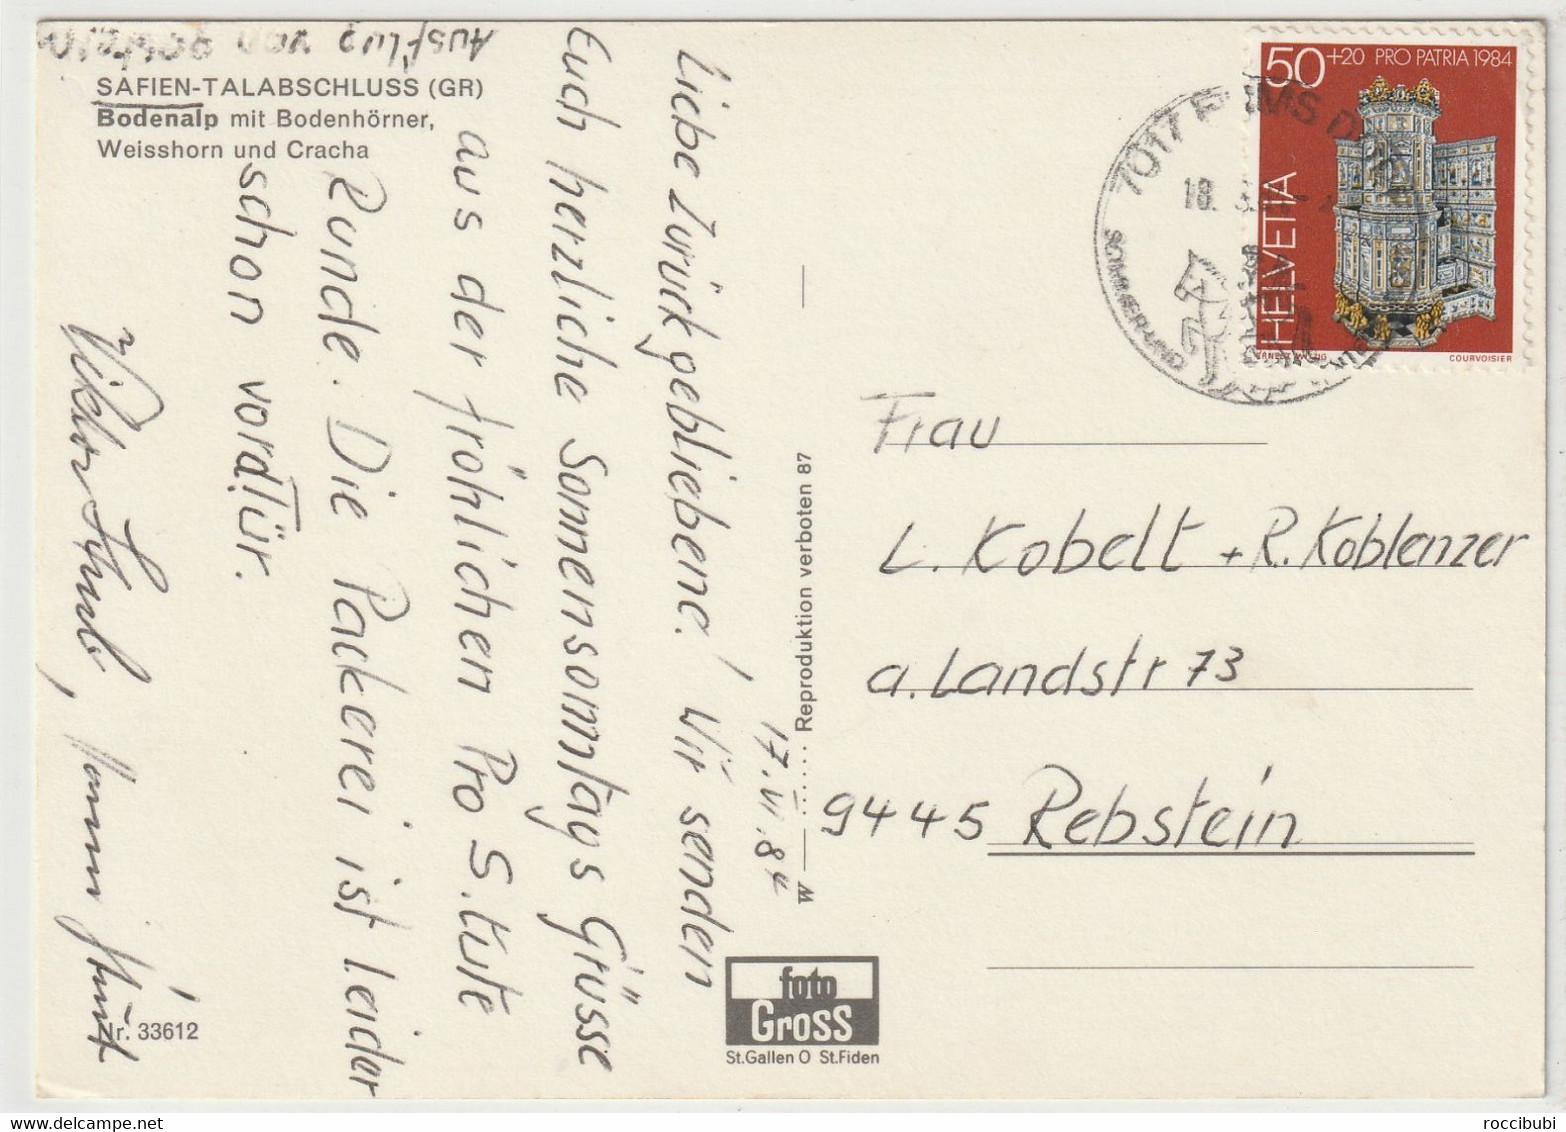 Ausflug von gestern
SAFIEN-TALABSCHLUSS (GR)
Bodenalp mit Bodenhörner,
Weisshorn und Cracha
Liebe Zurückgebliebene! Wir senden
Euch herzliche Sonnensonntags Grüsse
aus der fröhlichen Pro S.tute
Runde. Die Packerei ist leider
schon vor d Tür.
17.VI.84
Nr. 33612
W
Reproduktion verboten 87
foto
Gross
St.Gallen O St.Fiden
50 +20 PRO PATRIA 1984
HELVETIA
COURVOISIER
7017 FLIMS
18.
SOMMER UND
Frau
L. Kobelt + R. Koblenzer
a. Landstr 73
9445 Rebstein
roccibubi